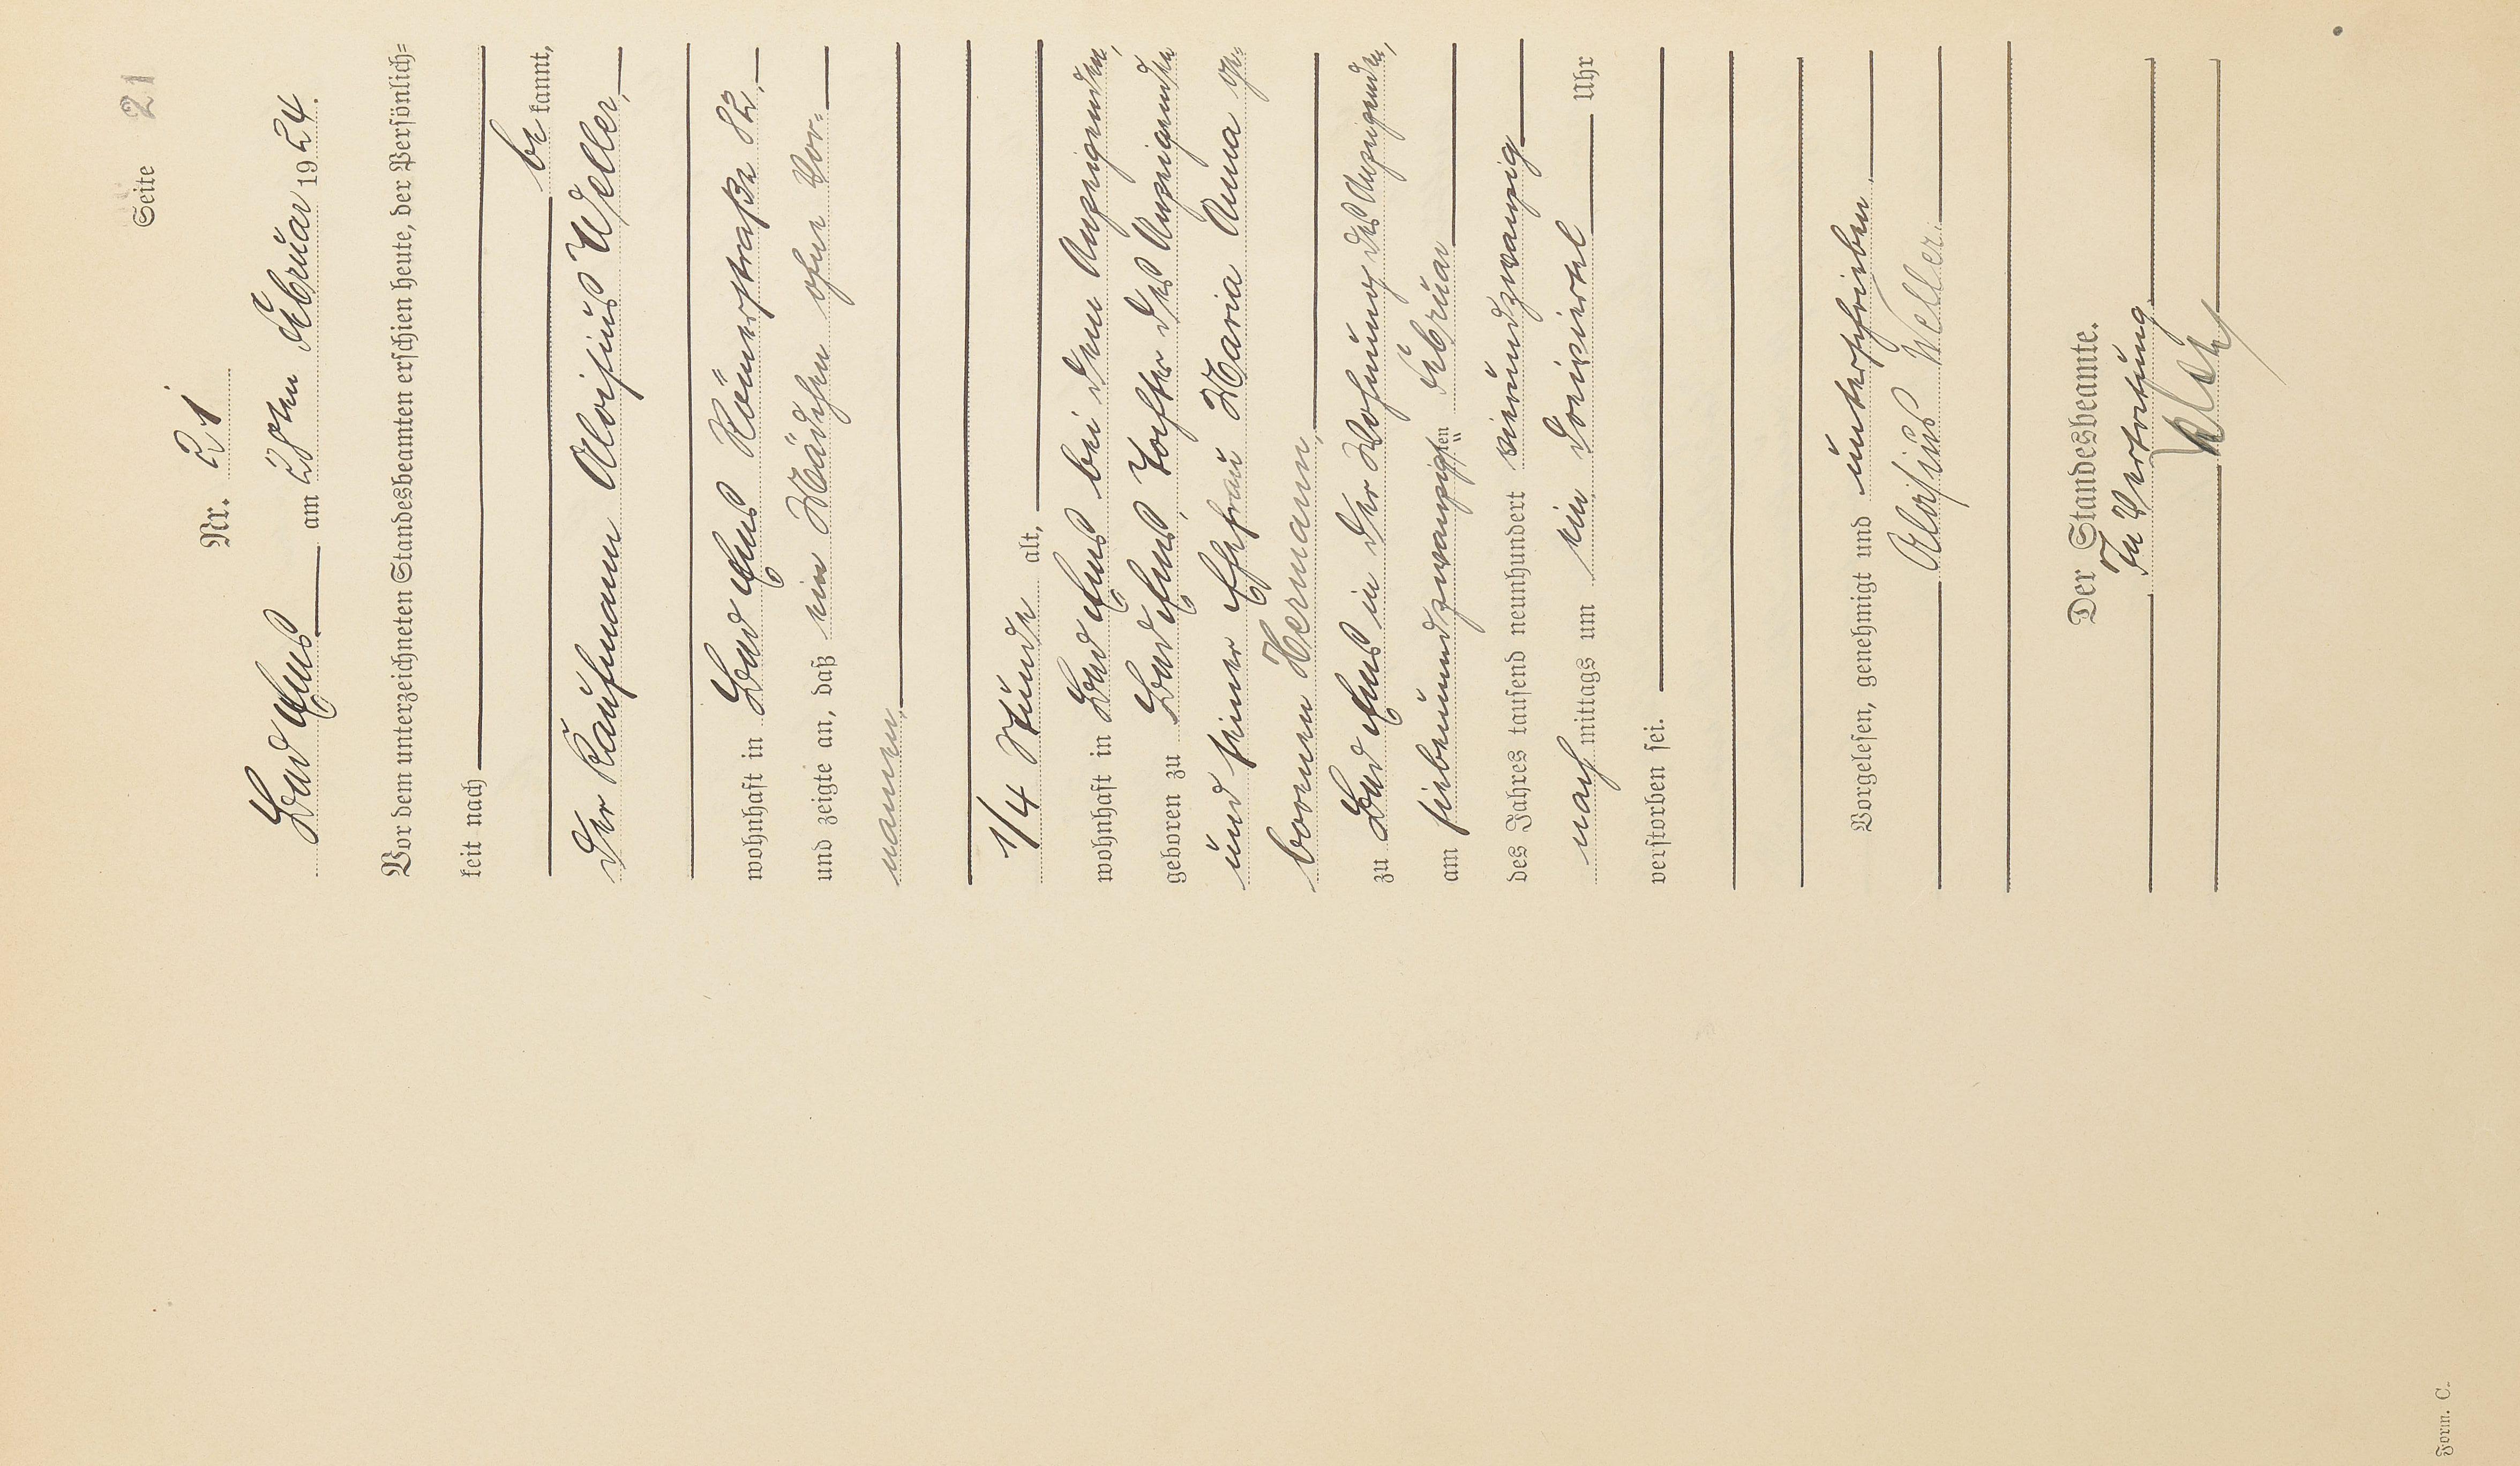 Seite 21
Nr. 21
Bad Ems am 28ten Februar 1924.
Vor dem unterzeichneten Standesbeamten erschien heute, der Persönlich=
keit nach
be kannt,
der Kaufmann Aloisius Weller,
wohnhaft in Bad Ems Römerstraße 82,
und zeigte an, daß ein Mädchen ohne Vor-
namen,
1/4 Stunde alt,
wohnhaft in Bad Ems bei dem Anzeigenden,
geboren zu Bad Ems, Tochter des Anzeigenden
und seiner Ehefrau Maria Anna ge=
borenen Hermann,
zu Bad Ems in der Wohnung des Anzeigenden,
am siebenundzwanzigsten Februar
des Jahres tausend neunhundert vierundzwanzig
nach mittags um ein dreiviertel Uhr
verstorben sei.
Vorgelesen, genehmigt und unterschrieben
Aloisius Weller.
Der Standesbeamte.
In Vertretung
Form. C.